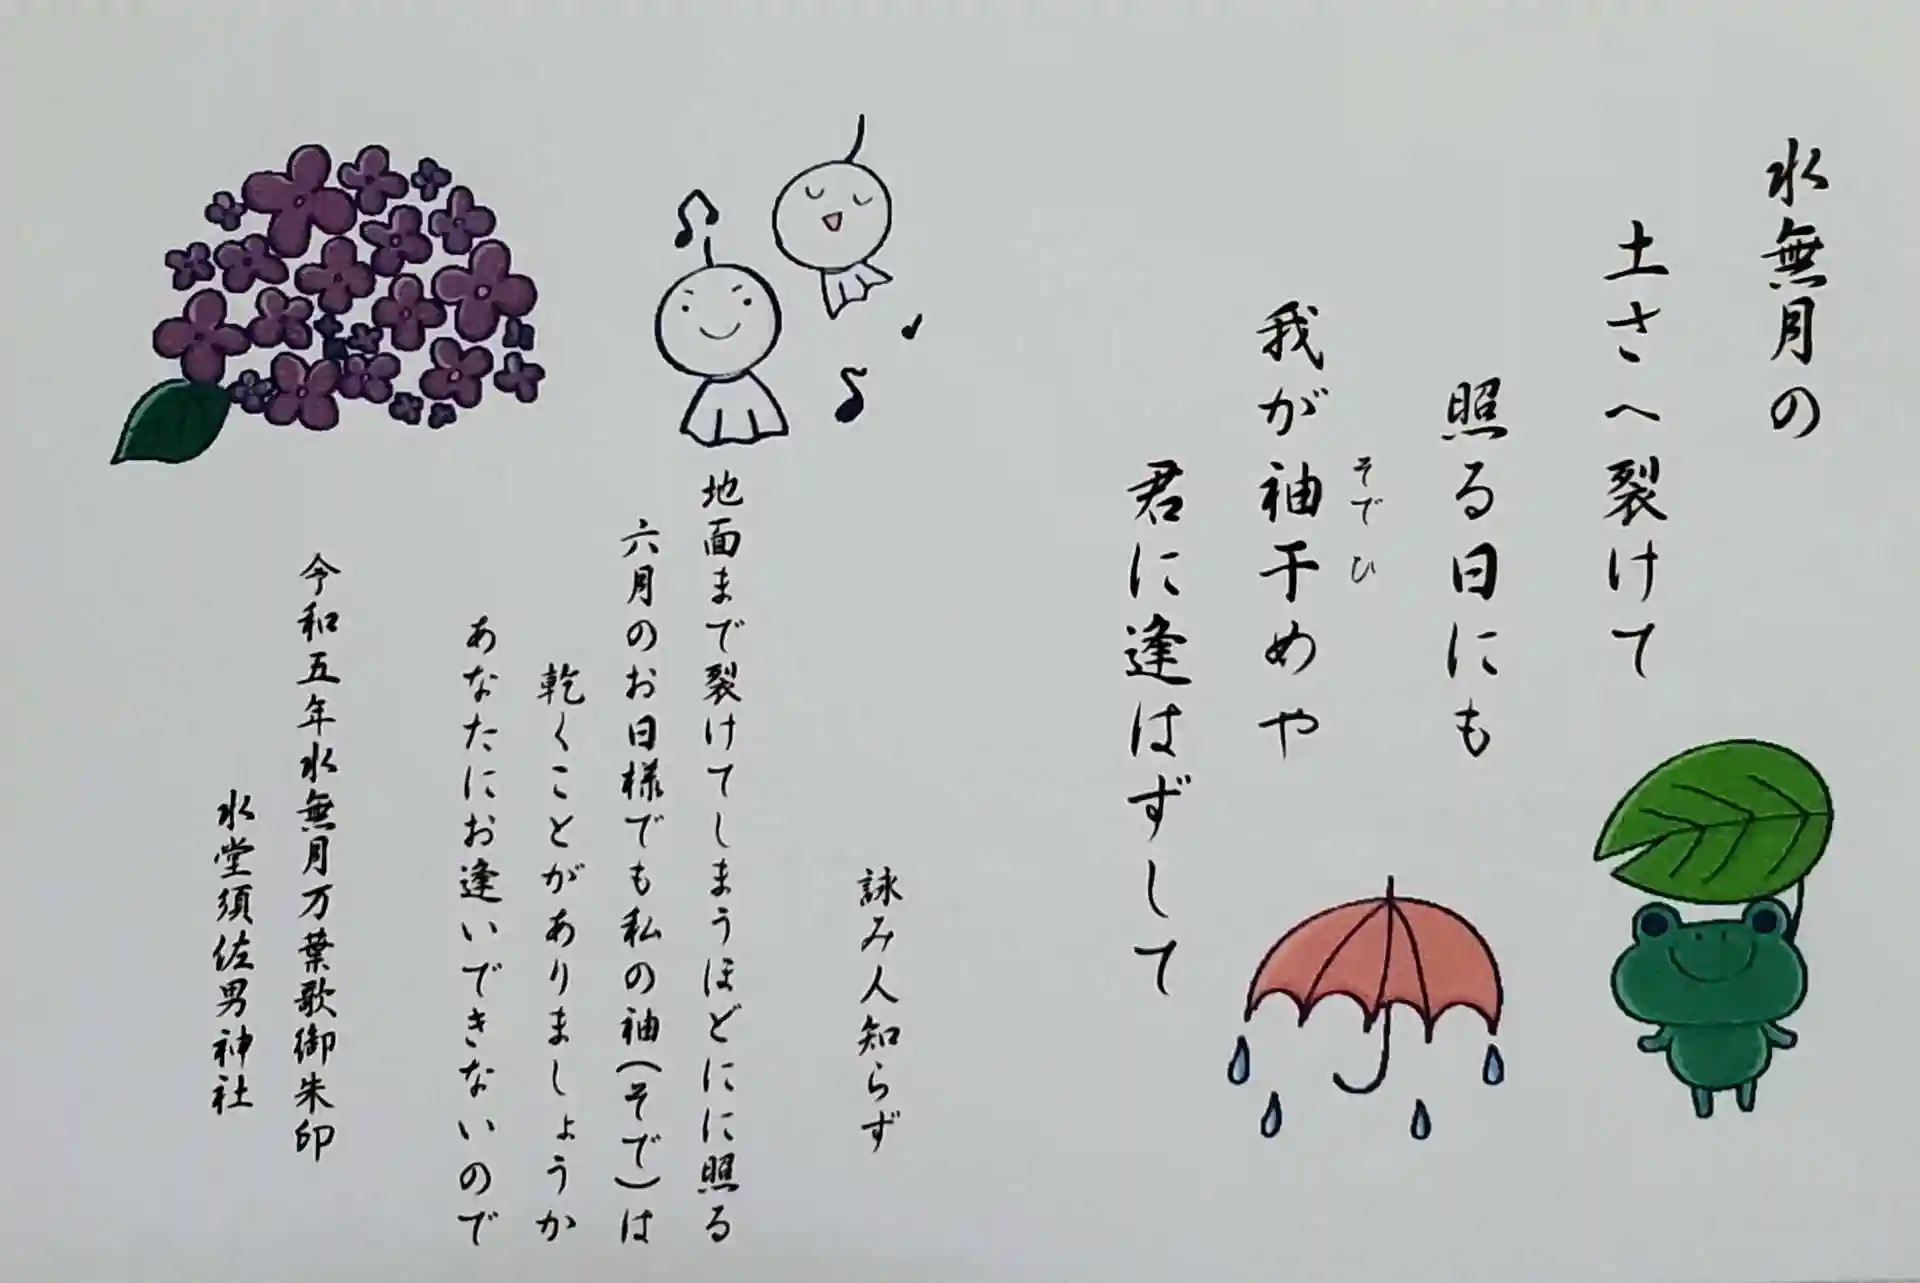 水無月の
土さへ裂けて
照る日にも
我が袖干めや
そで ひ
君に逢はずして
詠み人知らず
地面まで裂けてしまうほどにに照る
六月のお日様でも私の袖(そで)は
乾くことがありましょうか
あなたにお逢いできないので
令和五年水無月万葉歌御朱印
水堂須佐男神社